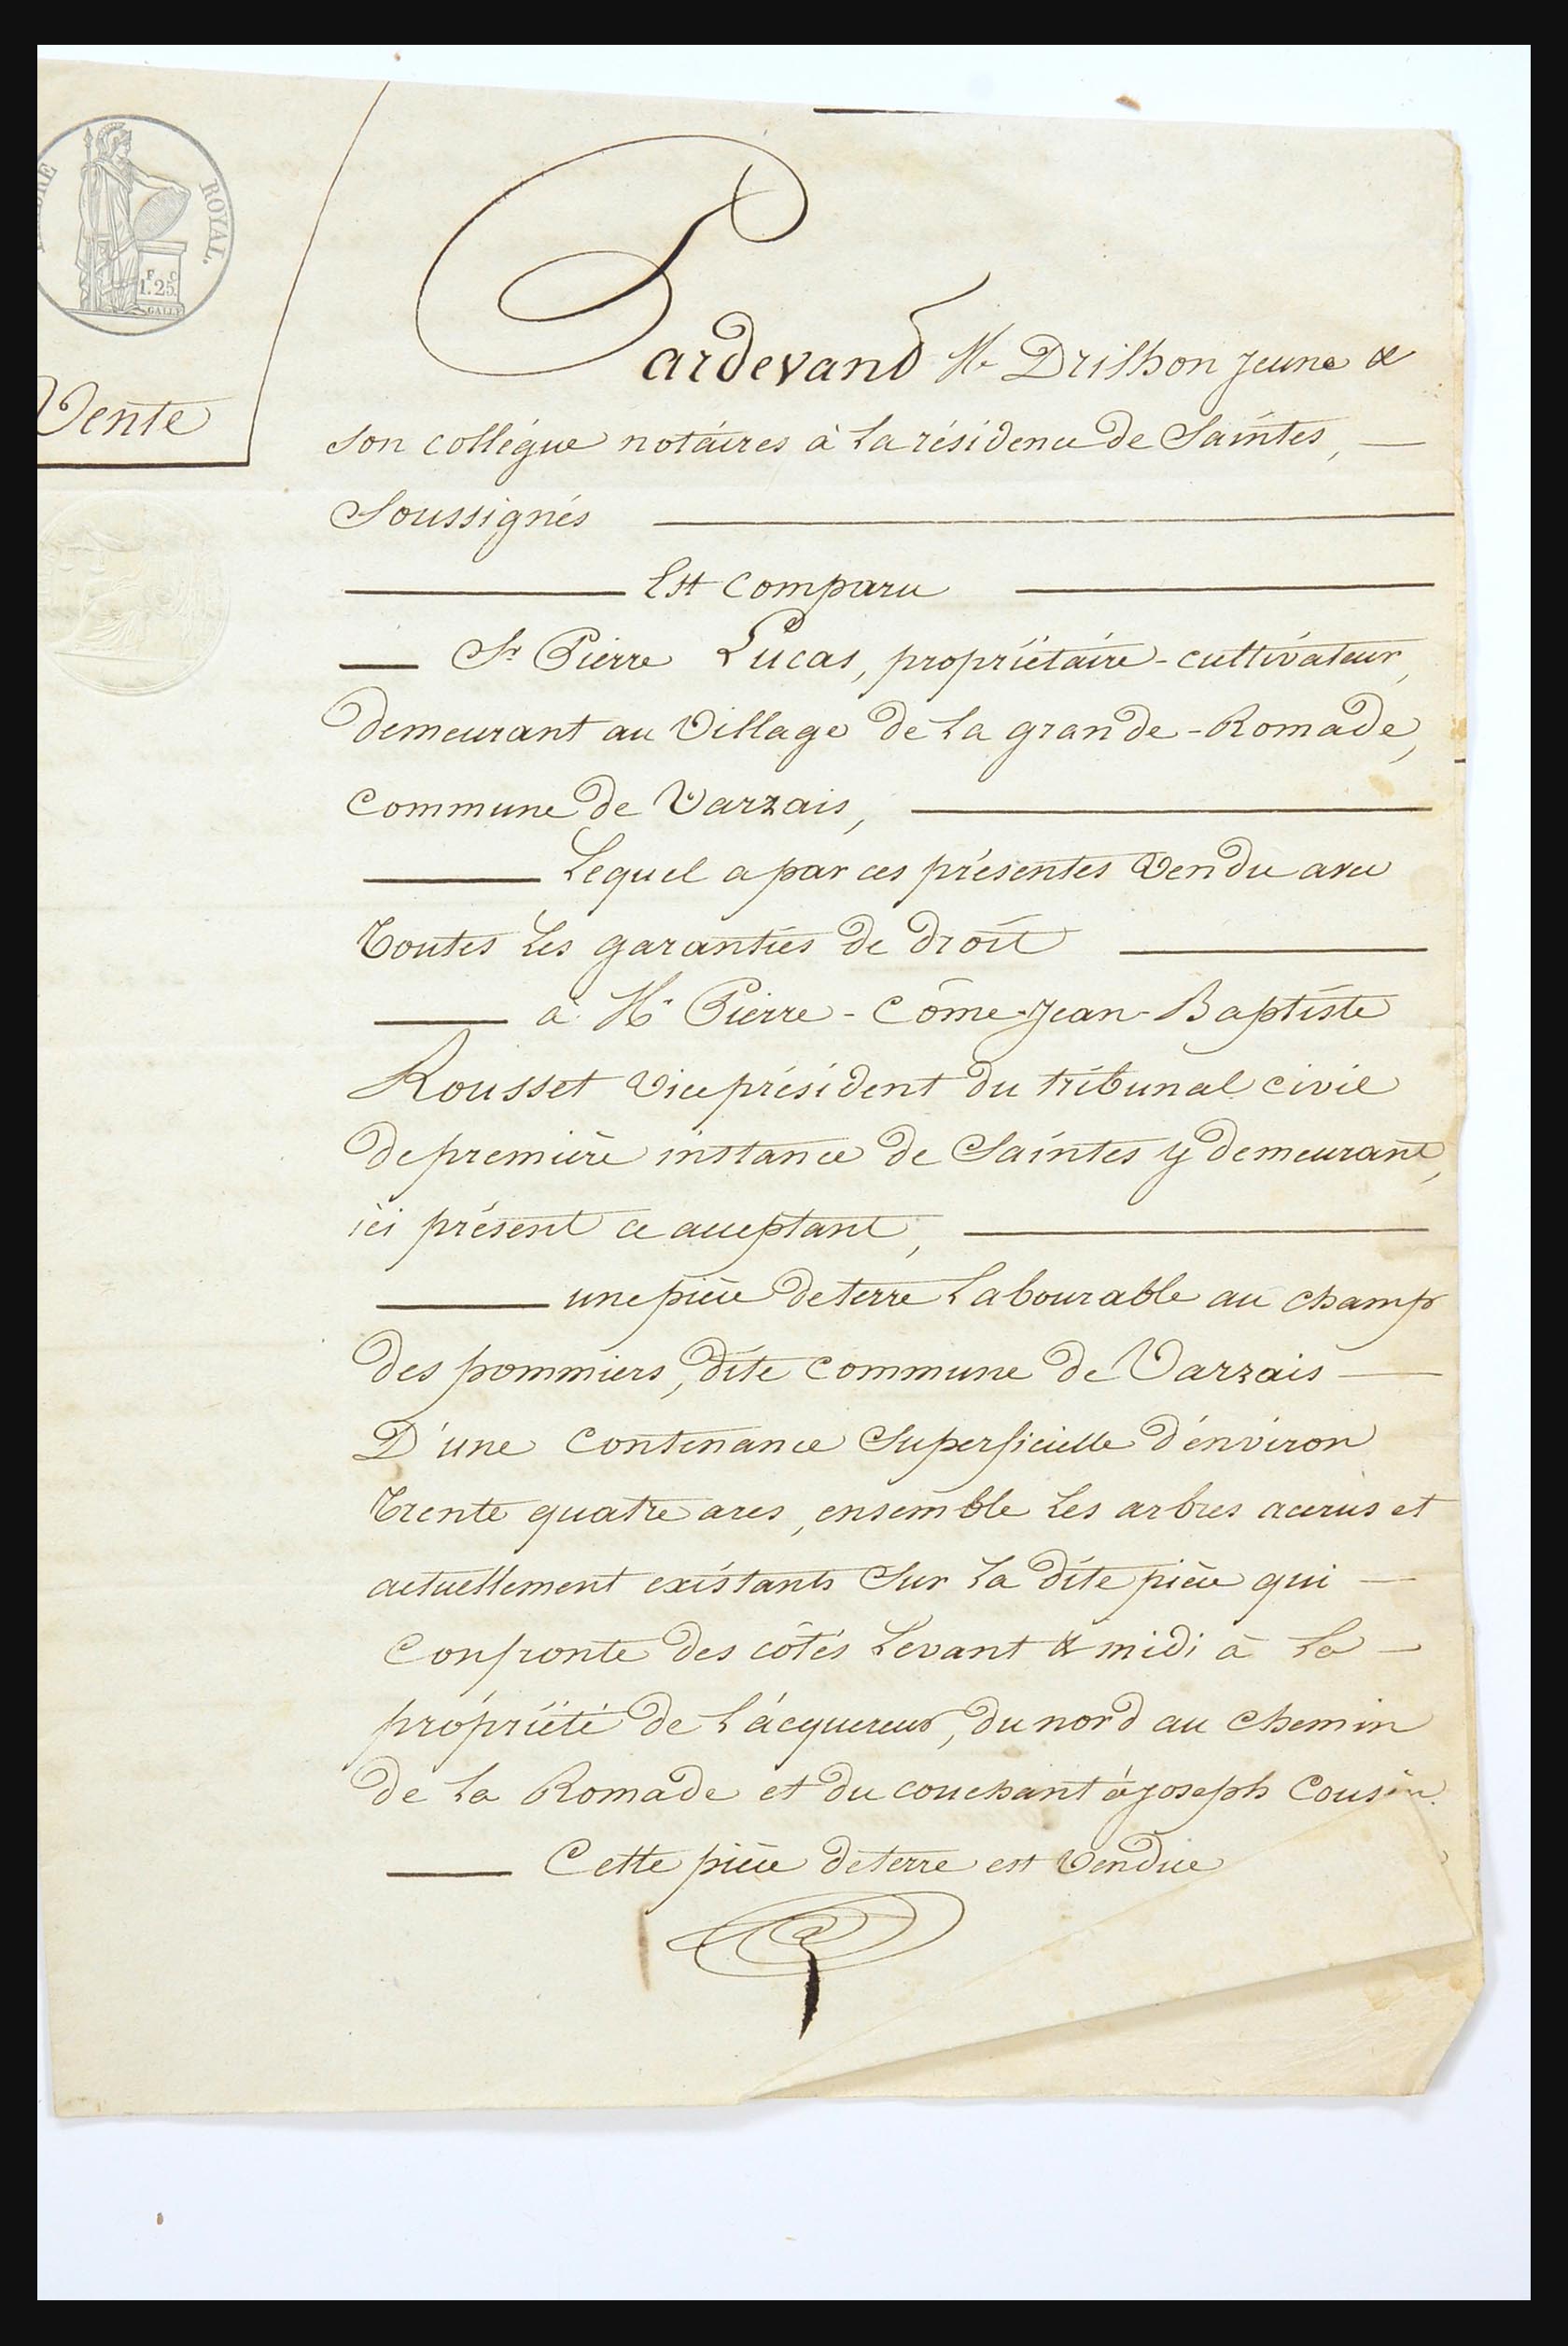 TIMBRE ROYAL.
F. C
1.25
GALLE
Vente
Pardevand Me Drilhon jeune &
son collégue notaires à la résidence de Saintes, —
Soussignés
Est Comparu
Sr Pierre Lucas, propriétaire-cultivateur,
demeurant au Village de la grande-Romade,
Commune de Varzais,
Lequel a par ces présentes Vendu avec
Toutes les garanties de droit
à Mr Pierre-Côme-Jean-Baptiste
Rousset Vice président du tribunal civil
de première instance de Saintes y demeurant,
ici présent ce acceptant,
une pièce de terre labourable au champ
des pommiers, dite commune de Varzais —
D'une Contenance Superficielle d'environ
Trente quatre ares, ensemble les arbres accrus et
actuellement existants Sur la dite pièce qui —
Confronte des côtés levant & midi à la —
propriété de l'acquereur, du nord au Chemin
de la Romade et du couchant à joseph Cousin.
Cette pièce de terre est Vendue